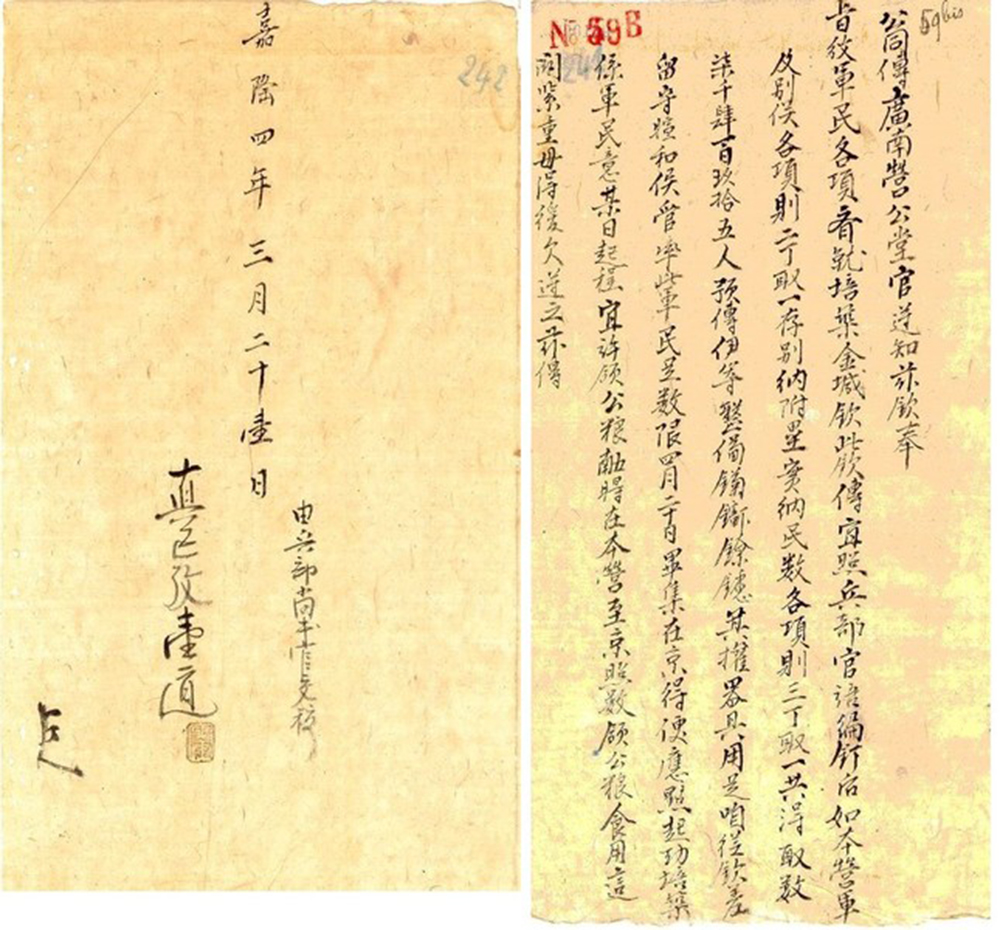 59bis
公同傳廣南營公堂官遵知茲欽奉
旨放軍民各項就培築金城欽此欽傳宜照兵部官語編釘后如本營軍
及別侯各項則二丁取一存別納附壘寔納民数各項則三丁取一共淂取数
柒千肆百玖拾五人預傳伊等整備器具用是咱從欽差
留守和侯管率此軍民足数限四月二十日畢集在京得便應照起功培築
係軍民意某日起程宜許領公粮在本營至京照数領公粮食用這
關緊重毋淂後欠遵之茲傳
No 59B
242
242
由兵部尚書官文
嘉隆四年三月二十壹日
壹道